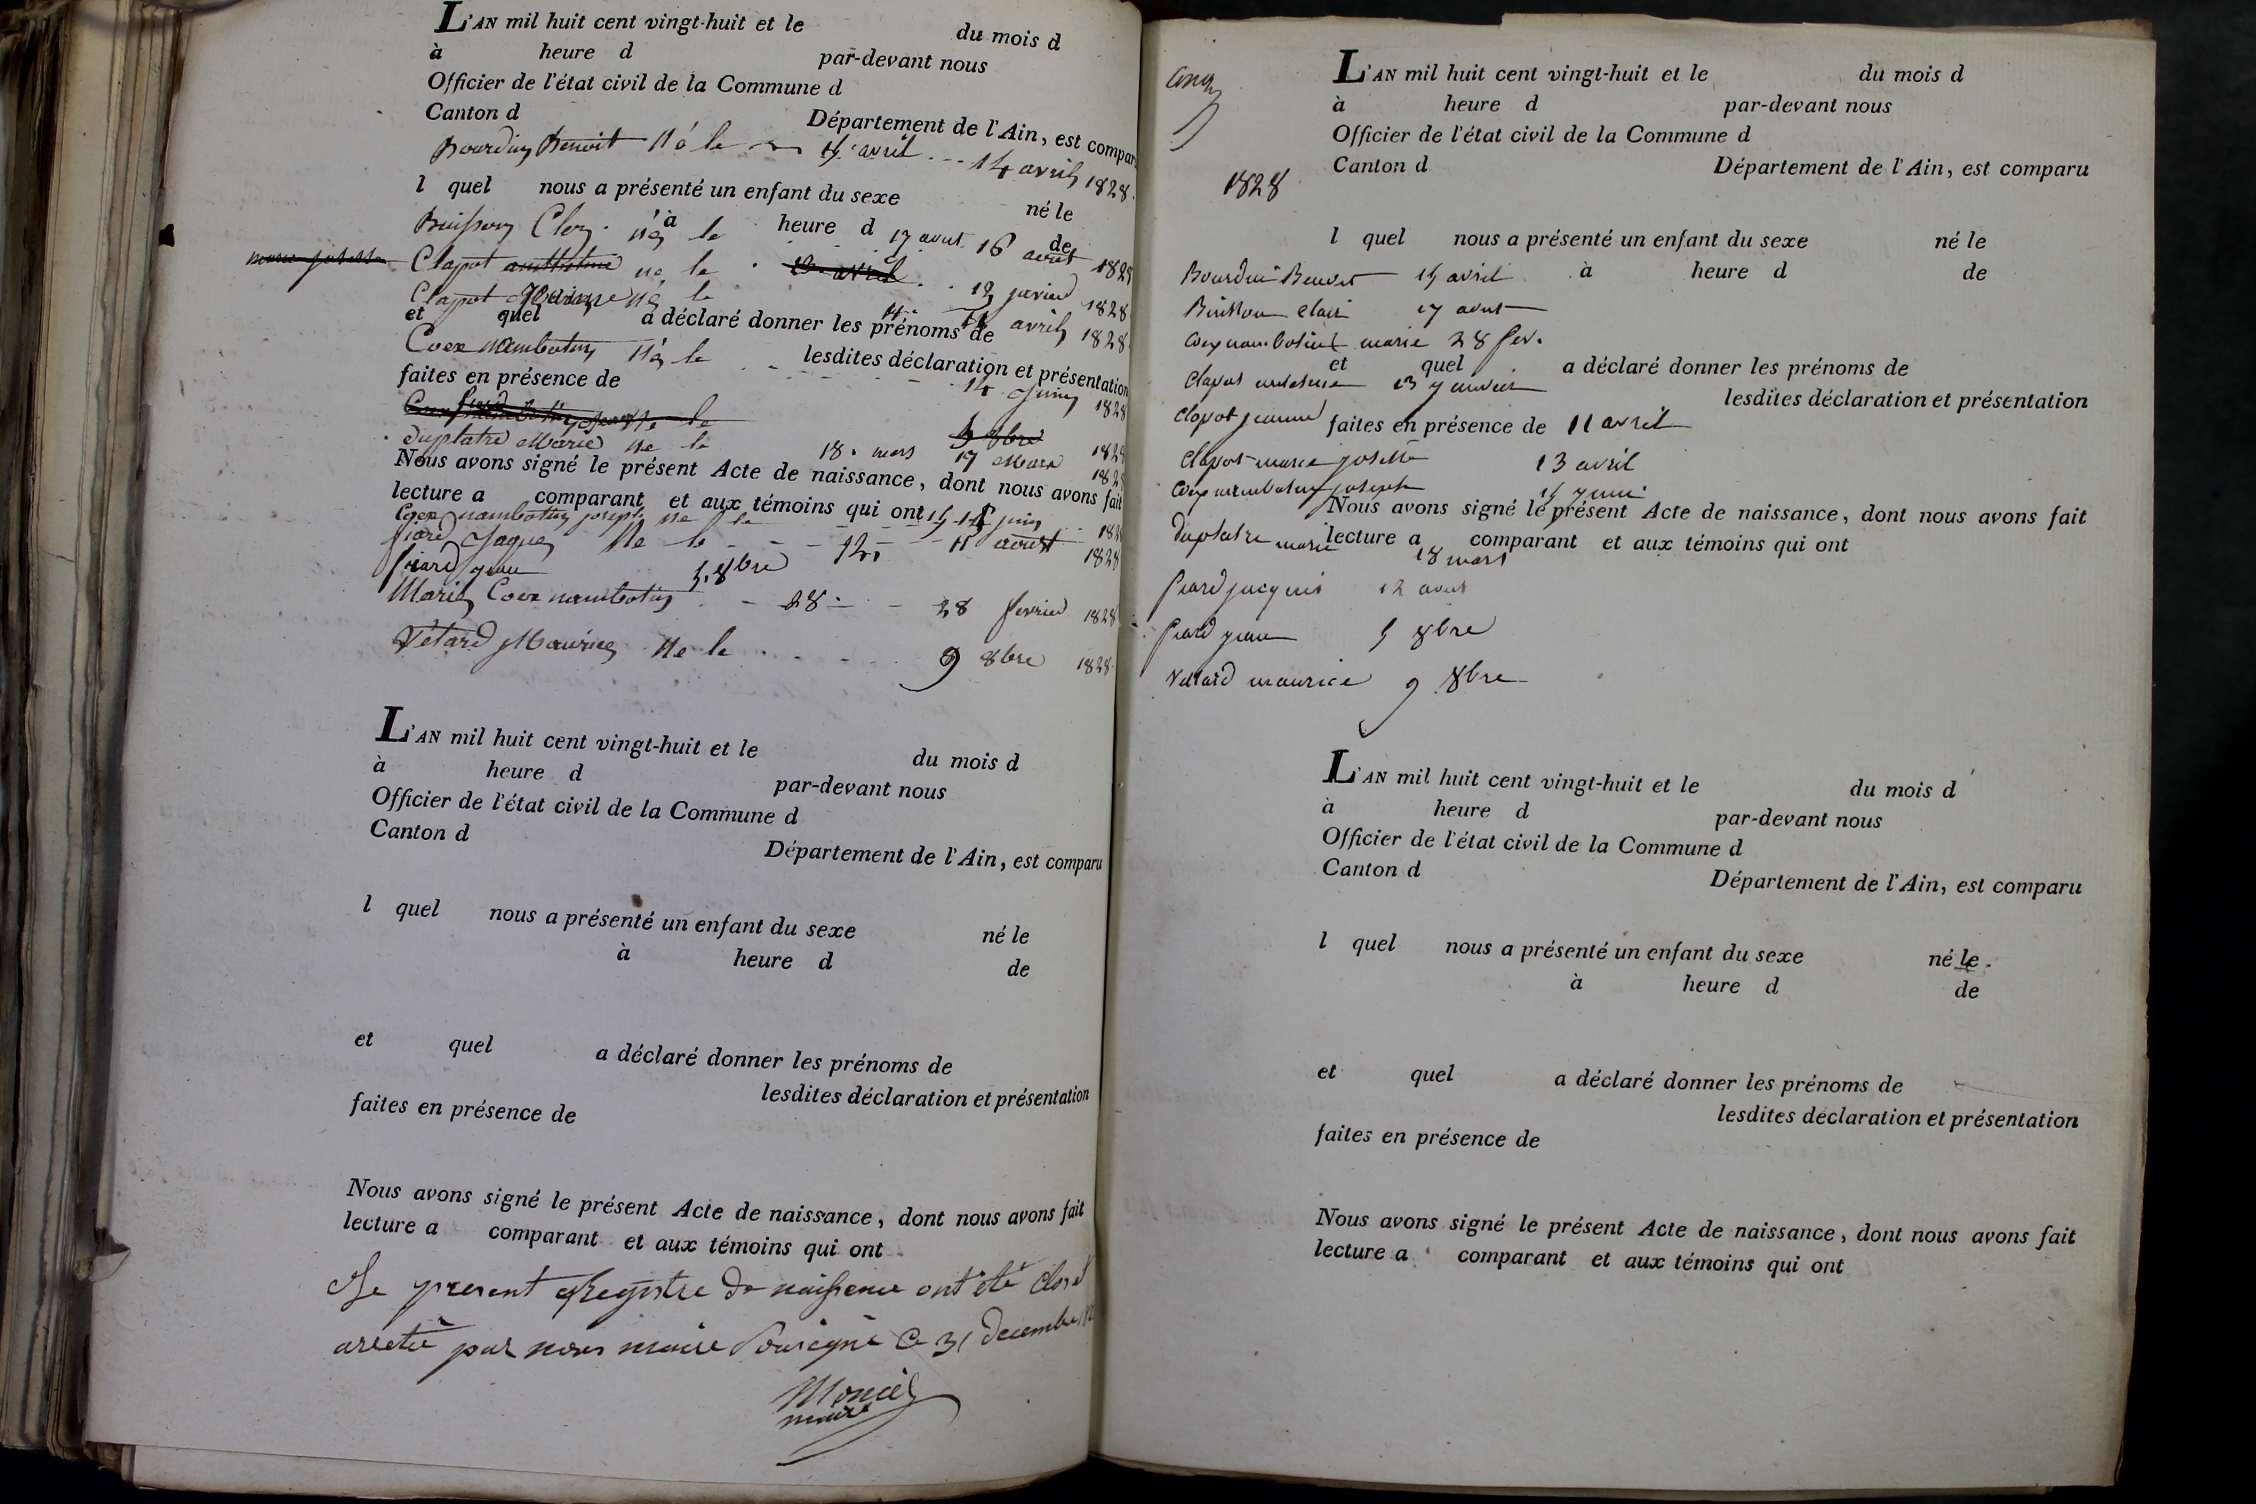 L'AN mil huit cent vingt-huit et le du mois d
à heure d par-devant nous
Officier de l'état civil de la Commune d
Canton d Département de l'Ain, est compar
Bourdin Benoit né le 15 avril 14 avril 1828
l quel nous a présenté un enfant du sexe né le
à heure d de
Buisson né le 17 aout 16 aout 1828
Clapot né le 13 janvier 1828
Clapot né le 11 avril 1828
et quel a déclaré donner les prénoms de
lesdites déclaration et présentation
Coex nambotin né le 14 1828
faites en présence de
duplatre Marie né le 18 mars 17 Mars 1828
Nous avons signé le présent Acte de naissance, dont nous avons fait
lecture a comparant et aux témoins qui ont
Coex nambotin joseph né le 15 juin
Jaques né le 12 11 aoust 1828
jean 5 8bre
Marie Coex nambotin 28 28 fevrier 1828
Vétard Maurice né le 9 8bre 1828
L'AN mil huit cent vingt-huit et le du mois d
à heure d par-devant nous
Officier de l'état civil de la Commune d
Canton d Département de l'Ain, est comparu
l quel nous a présenté un enfant du sexe né le
à heure d de
et quel a déclaré donner les prénoms de
lesdites déclaration et présentation
faites en présence de
Nous avons signé le présent Acte de naissance, dont nous avons fait
lecture a comparant et aux témoins qui ont
Le present Registre de naissence ont été clos et
aretté par nous maire Sousigné Ce 31 decembre
maire
L'AN mil huit cent vingt-huit et le du mois d
à heure d par-devant nous
Officier de l'état civil de la Commune d
Canton d Département de l'Ain, est comparu
1828
l quel nous a présenté un enfant du sexe né le
à heure d de
Bourdin Benoit 15 avril
Buisson clair 17 aout
Coex nambotin marie 28 fev.
et quel a déclaré donner les prénoms de
Clapot 13 janvier
lesdites déclaration et présentation
Clapot jeanne 11 avril
faites en présence de
Clapot marie josette 13 avril
Coex nambotin joseph 15 juin
Nous avons signé le présent Acte de naissance, dont nous avons fait
lecture a comparant et aux témoins qui ont
Duplatre marie 18 mars
jacques 12 aout
jean 5 8bre
Vétard maurice 9 8bre
L'AN mil huit cent vingt-huit et le du mois d
à heure d par-devant nous
Officier de l'état civil de la Commune d
Canton d Département de l'Ain, est comparu
l quel nous a présenté un enfant du sexe né le
à heure d de
et quel a déclaré donner les prénoms de
lesdites déclaration et présentation
faites en présence de
Nous avons signé le présent Acte de naissance, dont nous avons fait
lecture a comparant et aux témoins qui ont